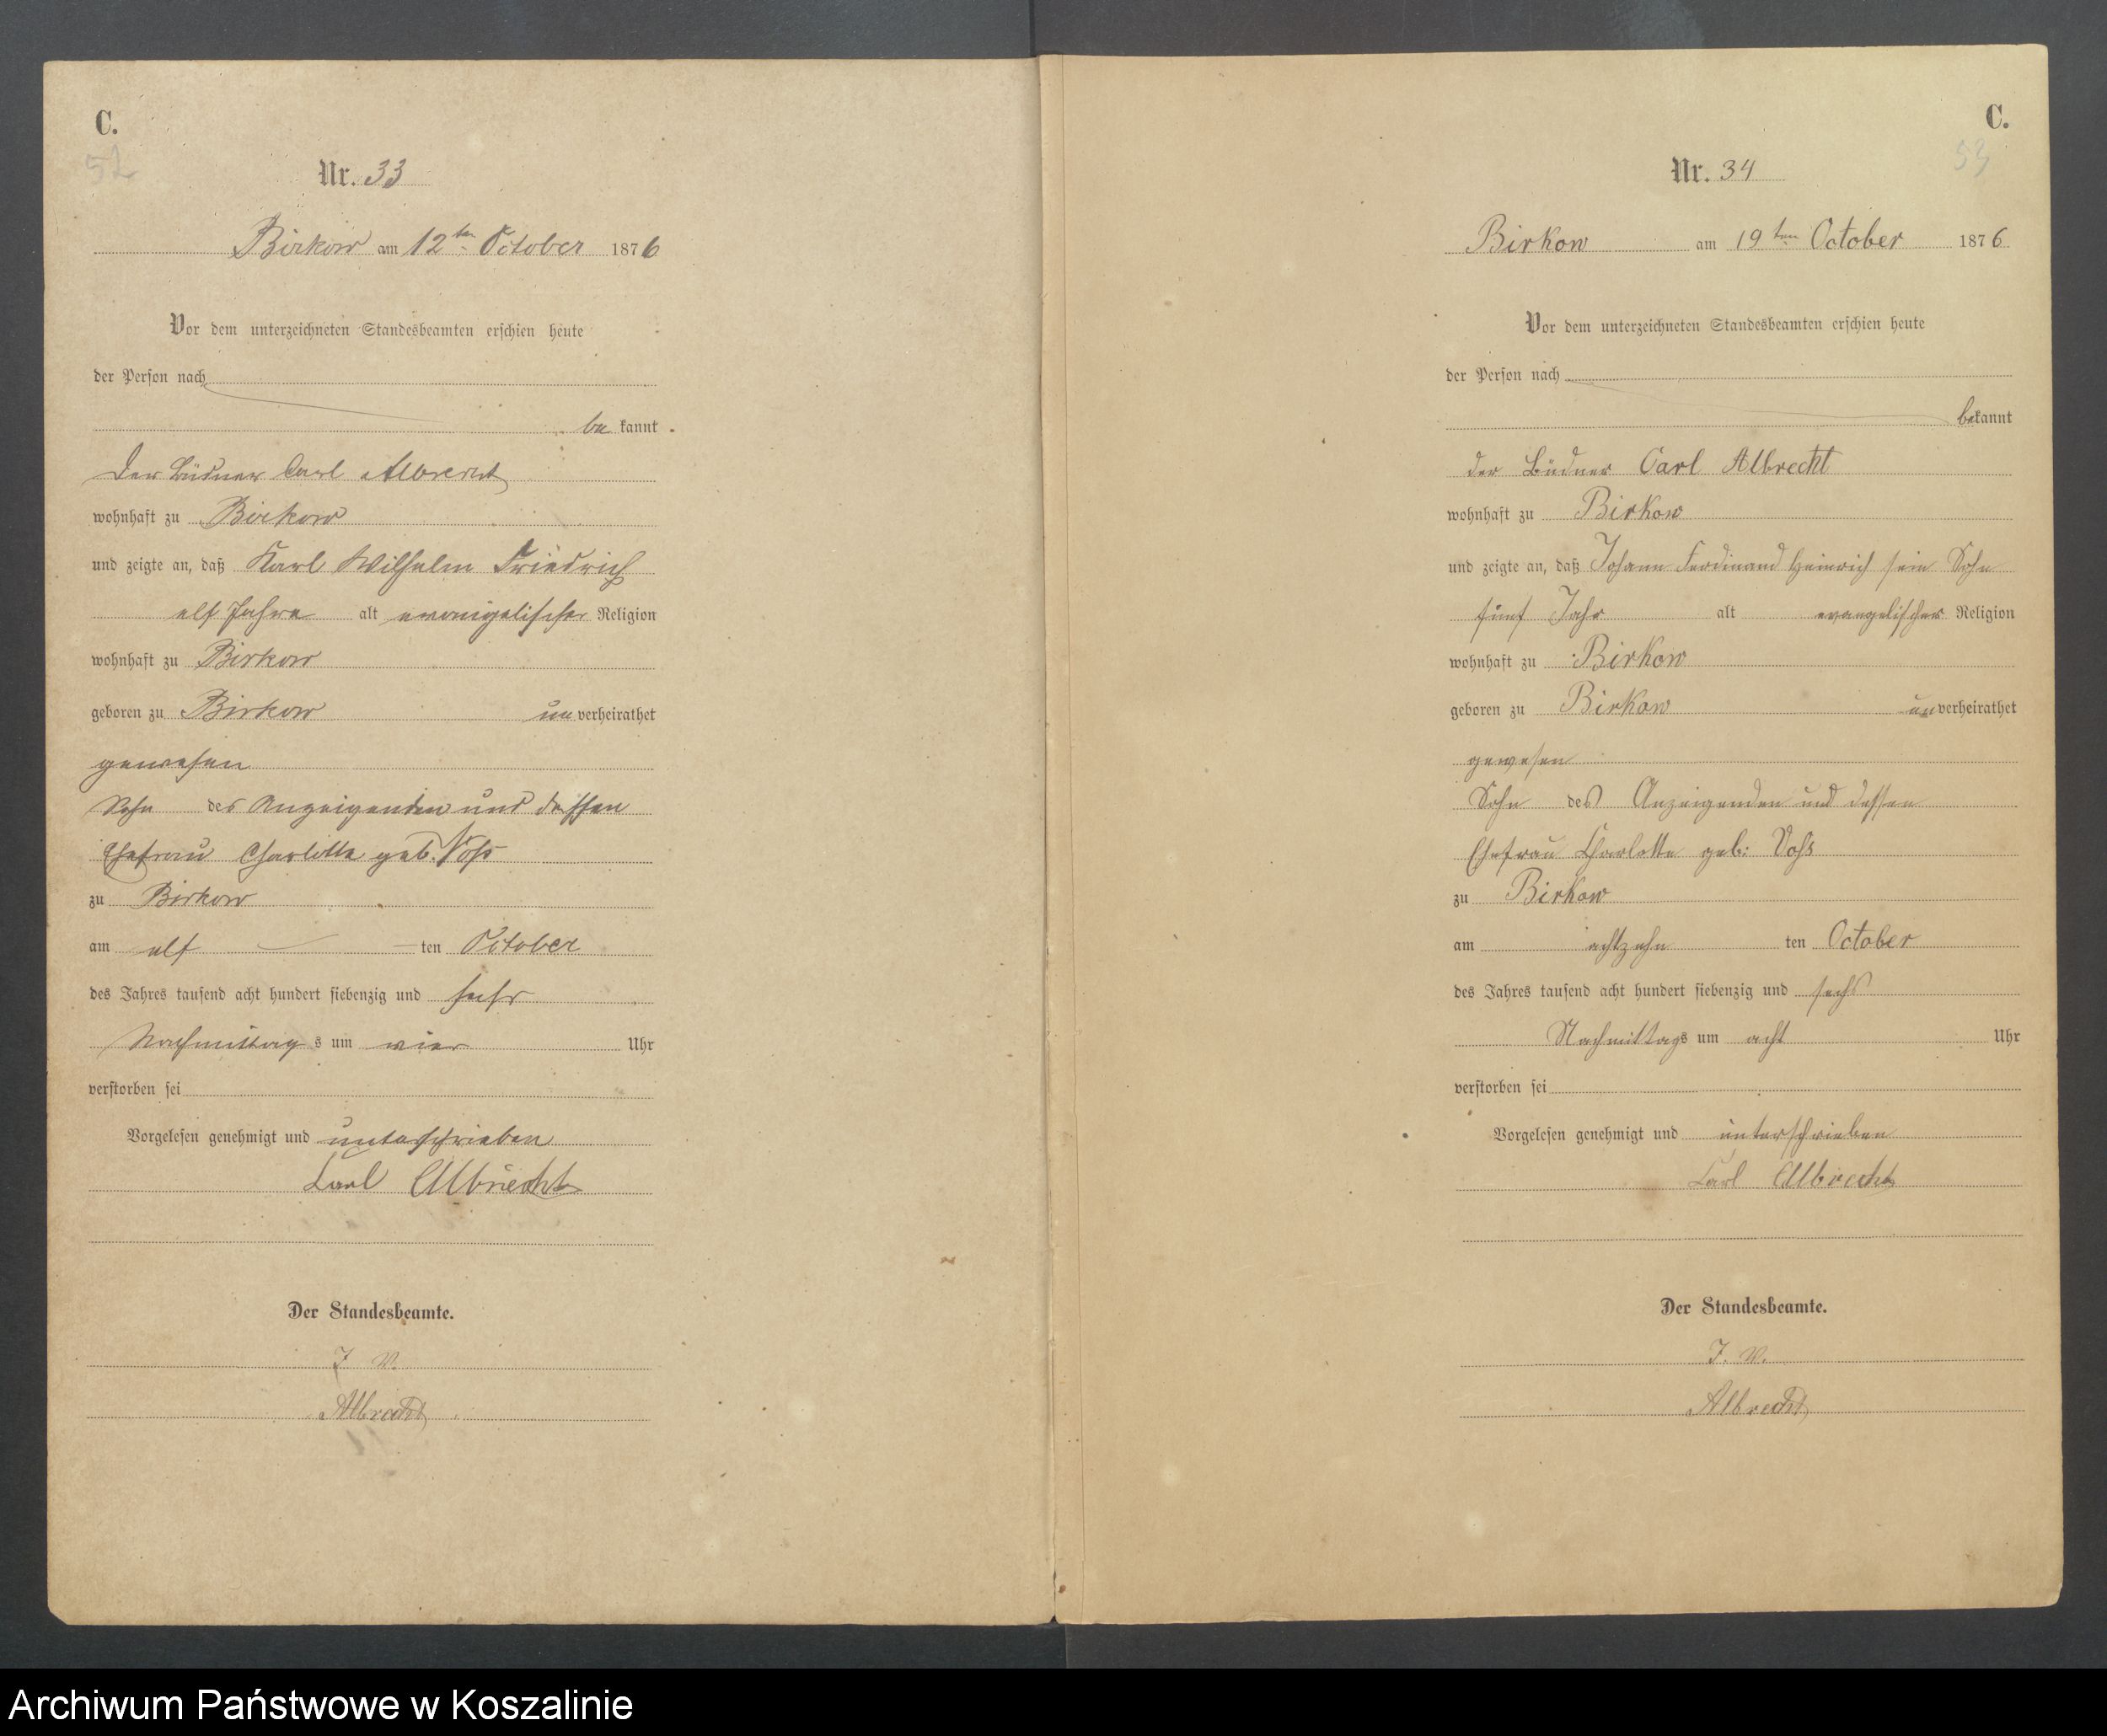 C.
52
Nr. 33
Birkow am 12ten October 1876
Vor dem unterzeichneten Standesbeamten erschien heute
der Person nach
bekannt
der Büdner Carl Albrecht
wohnhaft zu Birkow
und zeigte an, daß Karl Wilhelm Friedrich
elf Jahre alt evangelischer Religion
wohnhaft zu Birkow
geboren zu Birkow unverheirathet
gewesen
Sohn des Anzeigenden und dessen
Ehefrau Charlotte geb. Voß
zu Birkow
am elf ten October
des Jahres tausend acht hundert siebenzig und sechs
Nachmittags um vier Uhr
verstorben sei
Vorgelesen genehmigt und unterschrieben
Carl Albrecht
Der Standesbeamte.
J. V.
Albrecht
C.
53
Nr. 34
Birkow am 19ten October 1876
Vor dem unterzeichneten Standesbeamten erschien heute
der Person nach
bekannt
der Büdner Carl Albrecht
wohnhaft zu Birkow
und zeigte an, daß Johann Ferdinand Heinrich sein Sohn
fünf Jahr alt evangelischer Religion
wohnhaft zu Birkow
geboren zu Birkow unverheirathet
gewesen
Sohn des Anzeigenden und dessen
Ehefrau Charlotte geb: Voß
zu Birkow
am achtzehn ten October
des Jahres tausend acht hundert siebenzig und sechs
Nachmittags um acht Uhr
verstorben sei
Vorgelesen genehmigt und unterschrieben
Carl Albrecht
Der Standesbeamte.
J. V.
Albrecht
Archiwum Państwowe w Koszalinie